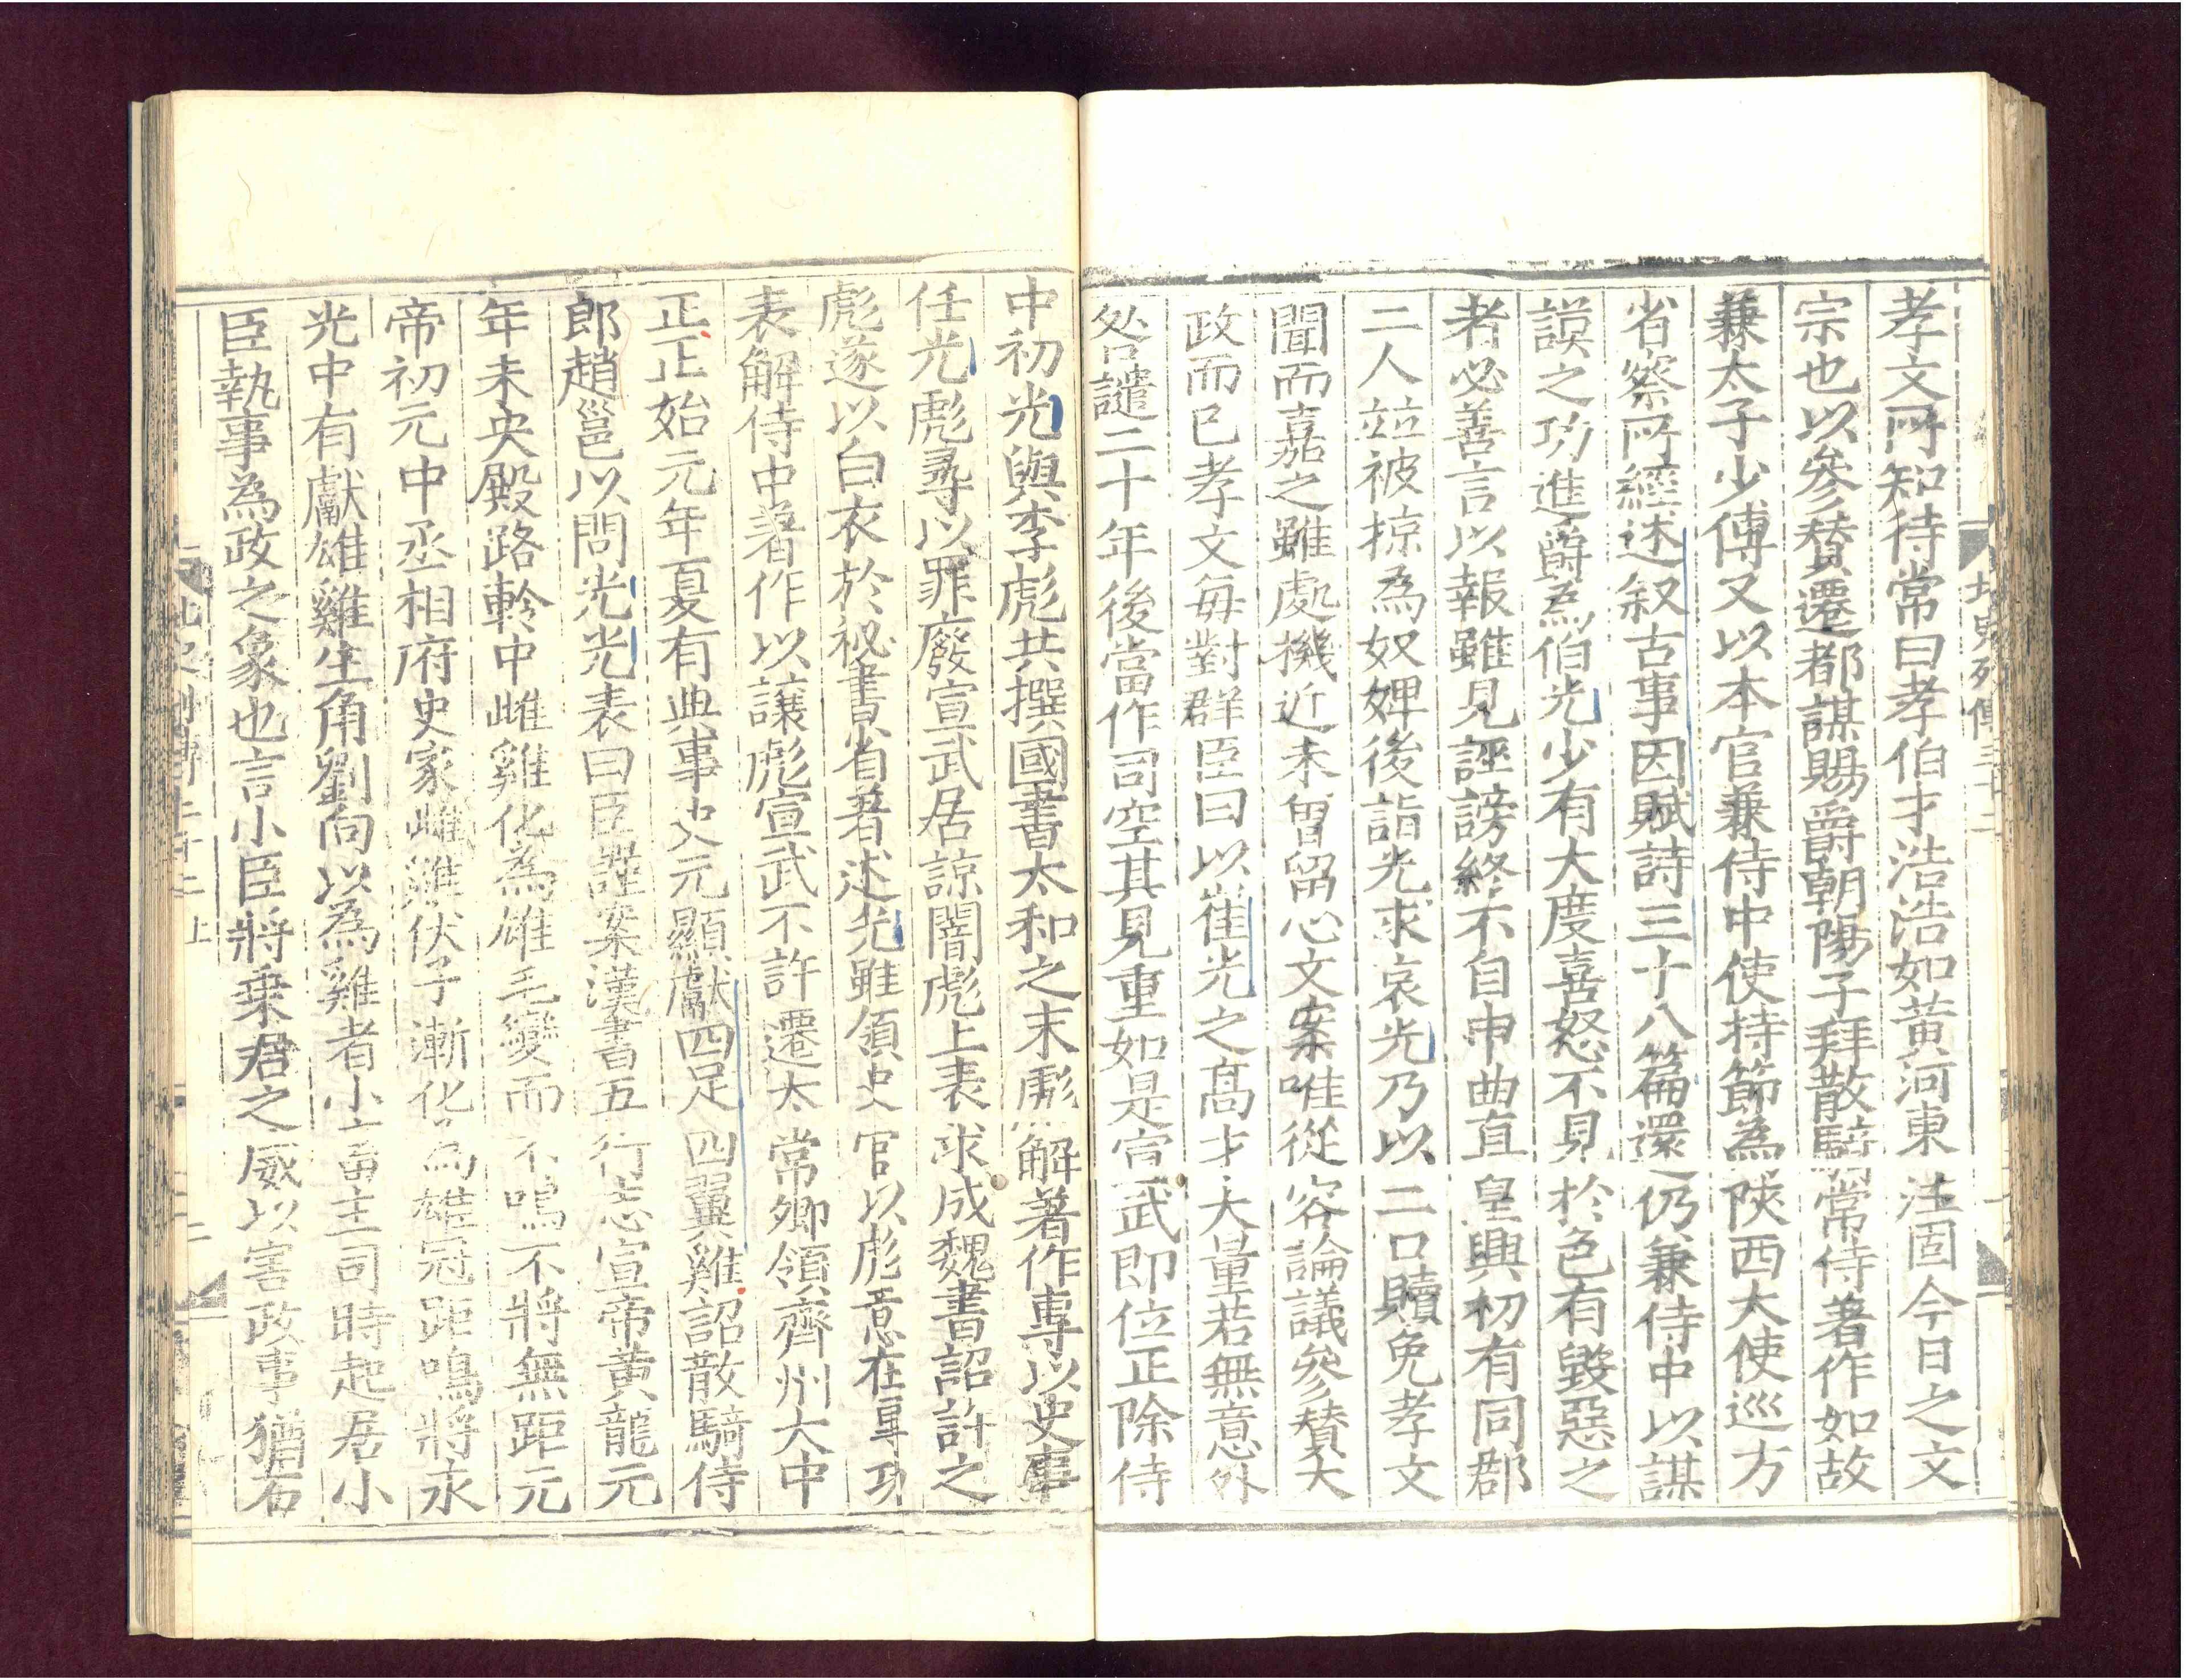 孝文所知待常曰孝伯才浩浩如黃河東注固今日之文
宗也以參賛遷都謀賜爵朝陽子拜散騎常侍著作如故
兼太子少傅又以本官兼侍中使持節為陝西大使巡方
省察所經述叙古事因賦詩三十八篇還仍兼侍中以謀
謨之功進爵為伯光少有大度喜怒不見於色有毀惡之
者必善言以報雖見誣謗終不自申曲直皇興初有同郡
二人並被掠為奴婢後詣光求哀光乃以二口贖免孝文
聞而嘉之雖處機近未曾留心文案唯從容論議參賛大
政而已孝文每對群臣曰以崔光之髙才大量若無意外
咎譴二十年後當作司空其見重如是宣武即位正除侍
中初光與李彪共撰國書太和之末彪解著作專以史事
任光彪尋以罪廢宣武居諒闇彪上表求成魏書詔許之
彪遂以白衣於祕書省著述光雖領史官以彪意在專功
表解侍中著作以讓彪宣武不許遷太常卿領齊州大中
正正始元年夏有典事史元顯獻四足四翼雞詔散騎侍
郎趙邕以問光光表曰臣謹案漢書五行志宣帝黄龍元
年未央殿路軨中雌雞化為雄毛變而不鳴不將無距元
帝初元中丞相府史家雌雞伏子漸化為雄冠距鳴將永
光中有獻雄雞生角劉向以為雞者小畜主司時起居小
臣執事為政之象也言小臣將乗君之威以害政事猶石
北史列傳三十二
北史列傳三十二 上